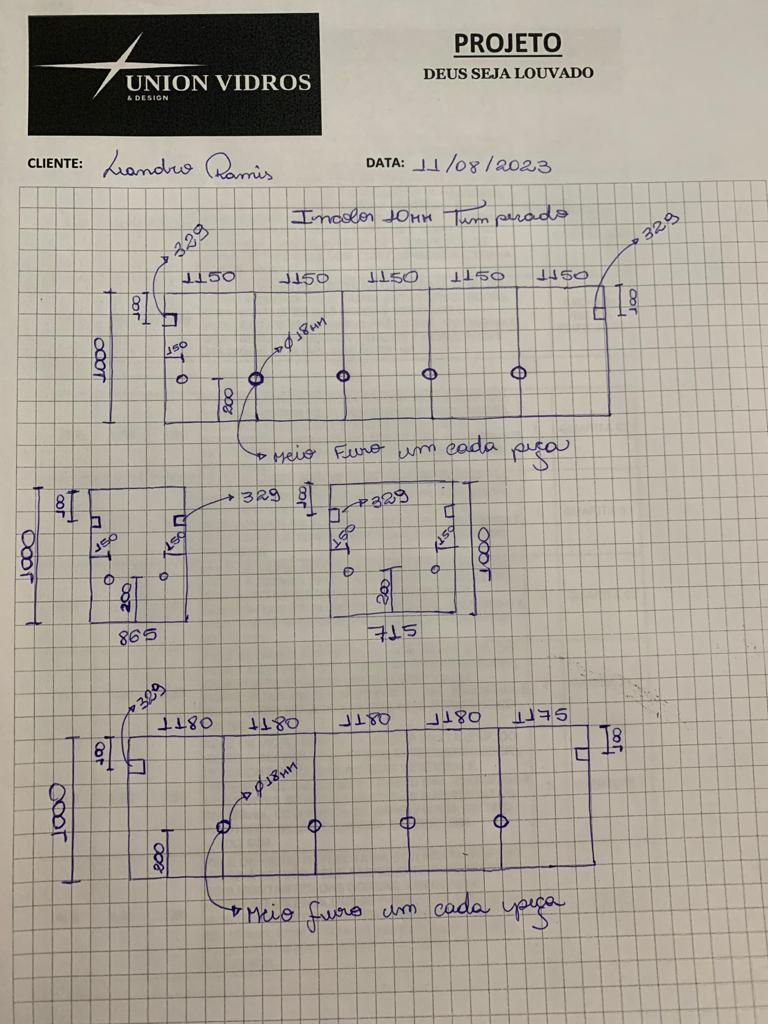 PROJETO
UNION VIDROS
& DESIGN
DEUS SEJA LOUVADO
CLIENTE: Leandro Ramis DATA: 11/08/2023
Incolor 10MM Temperado
329 329
1150 1150 1150 1150 1150
108 108
1000
150
Ø18MM
200
Meio Furo em cada peça
108 329 108 329
1000 150 150 150 150 1000
200 200
865 715
329
1180 1180 1180 1180 1175
108 108
1000
Ø18MM
200
Meio furo em cada peça